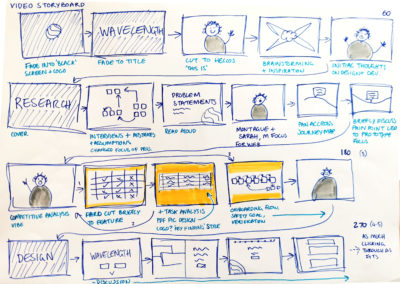 VIDEO STORYBOARD
60
WAVELENGTH
FADE INTO 'BLACK'
SCREEN + LOGO
FADE TO TITLE
CUT TO HELIOS
'THIS IS'
BRAINSTORMING
+ INSPIRATION
INITIAL THOUGHTS
ON DESIGN +
RESEARCH
PROBLEM
STATEMENTS
COVER
INTERVIEWS + MISTAKES
+ ASSUMPTIONS
CHANGED FOCUS OF
READ ALOUD
MONTAGUE +
SARAH, M FOCUS
FOR WEB
PAN ACCROSS
JOURNEY MAP
BRIEFLY DISCUSS
PAIN POINT LED
TO PROTOTYPE
FOCUS
180
COMPETITIVE ANALYSIS
VIBE
HARD CUT BRIEFLY
TO FEATURE
+ TASK ANALYSIS
ONBOARDING FLOW,
SAFETY GOAL,
VERIFICATION
270
DESIGN
WAVELENGTH
AS MUCH
CLICKING
THROUGH AS
FITS
- DISCUSSION